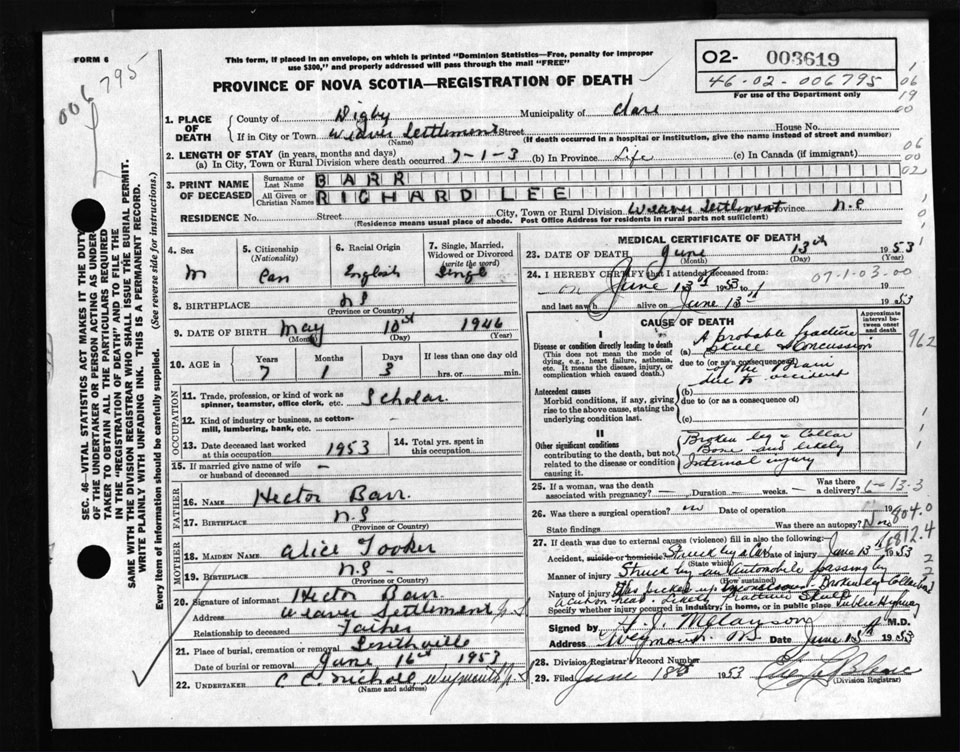 FORM 6
This form, if placed in an envelope, on which is printed "Dominion Statistics—Free, penalty for improper
use $300," and properly addressed will pass through the mail "FREE"
PROVINCE OF NOVA SCOTIA—REGISTRATION OF DEATH
O2- 003619
46-02-006795
For use of the Department only
006795
06
19
00
1. PLACE OF DEATH County of Digby Municipality of Clare
If in City or Town Weaver Settlement Street House No.
(Name) (If death occurred in a hospital or institution, give the name instead of street and number)
2. LENGTH OF STAY (in years, months and days)
(a) In City, Town or Rural Division where death occurred 7-1-3 (b) In Province Life (c) In Canada (if immigrant)
06
00
02
3. PRINT NAME OF DECEASED Surname or Last Name BARR
All Given or Christian Names RICHARD LEE
RESIDENCE No. Street City, Town or Rural Division Weaver Settlement Province N.S
(Residence means usual place of abode. Post Office Address for residents in rural parts not sufficient)
4. Sex M
5. Citizenship (Nationality) Can
6. Racial Origin English
7. Single, Married, Widowed or Divorced (write the word) Single
8. BIRTHPLACE N S
(Province or Country)
9. DATE OF BIRTH May 10 1946
(Month) (Day) (Year)
10. AGE in Years 7 Months 1 Days 3 If less than one day old hrs. or min.
OCCUPATION
11. Trade, profession, or kind of work as spinner, teamster, office clerk, etc. Scholar
12. Kind of industry or business, as cotton-mill, lumbering, bank, etc.
13. Date deceased last worked at this occupation 1953
14. Total yrs. spent in this occupation
15. If married give name of wife or husband of deceased -
FATHER
16. Name Hector Barr.
17. Birthplace N.S
(Province or Country)
MOTHER
18. Maiden Name Alice Tooker
19. Birthplace N.S -
(Province or Country)
20. Signature of informant Hector Barr.
Address Weaver Settlement N.S
Relationship to deceased Father
21. Place of burial, cremation or removal
Date of burial or removal June 16 1953
22. UNDERTAKER C C. Nicholl Weymouth N.S
(Name and address)
MEDICAL CERTIFICATE OF DEATH
23. DATE OF DEATH June 13th 1953
(Month) (Day) (Year)
24. I HEREBY CERTIFY that I attended deceased from
on June 13 1953 to 19
07-1-03-00
and last saw h alive on June 13th 1953
CAUSE OF DEATH
Approximate interval between onset and death
I
Disease or condition directly leading to death
(This does not mean the mode of dying, e.g., heart failure, asthenia, etc. It means the disease, injury, or complication which caused death.)
(a) A probable fracture
Skull & Concussion
due to (or as a consequence)
of the Brain
due to accident
962
Antecedent causes
Morbid conditions, if any, giving rise to the above cause, stating the underlying condition last.
(b)
due to (or as a consequence of)
(c)
II
Other significant conditions contributing to the death, but not related to the disease or condition causing it.
Broken leg & Collar
Bone and likely
Internal injury
25. If a woman, was the death associated with pregnancy? — Duration — weeks — Was there a delivery?
6-13-3
26. Was there a surgical operation? no Date of operation 19
State findings Was there an autopsy? No
804.0
N
27. If death was due to external causes (violence) fill in also the following:
Accident, suicide or homicide? Struck by a Car Date of injury June 13 1953
(State which)
Manner of injury Struck by an Automobile passing by
(How sustained)
Nature of injury Was picked up unconscious. Broken leg Collar bone
Fracture Skull
Specify whether injury occurred in industry, in home, or in public place Public Highway
Signed by Melanson M.D.
Address Weymouth N.S. Date June 13th 1953
28. Division Registrar's Record Number
29. Filed June 18 1953
(Division Registrar)
SEC. 46—VITAL STATISTICS ACT MAKES IT THE DUTY
OF THE UNDERTAKER OR PERSON ACTING AS UNDER-
TAKER TO OBTAIN ALL THE PARTICULARS REQUIRED
IN THE "REGISTRATION OF DEATH" AND TO FILE THE
SAME WITH THE DIVISION REGISTRAR WHO SHALL ISSUE THE BURIAL PERMIT.
WRITE PLAINLY WITH UNFADING INK. THIS IS A PERMANENT RECORD.
Every item of information should be carefully supplied. (See reverse side for instructions.)